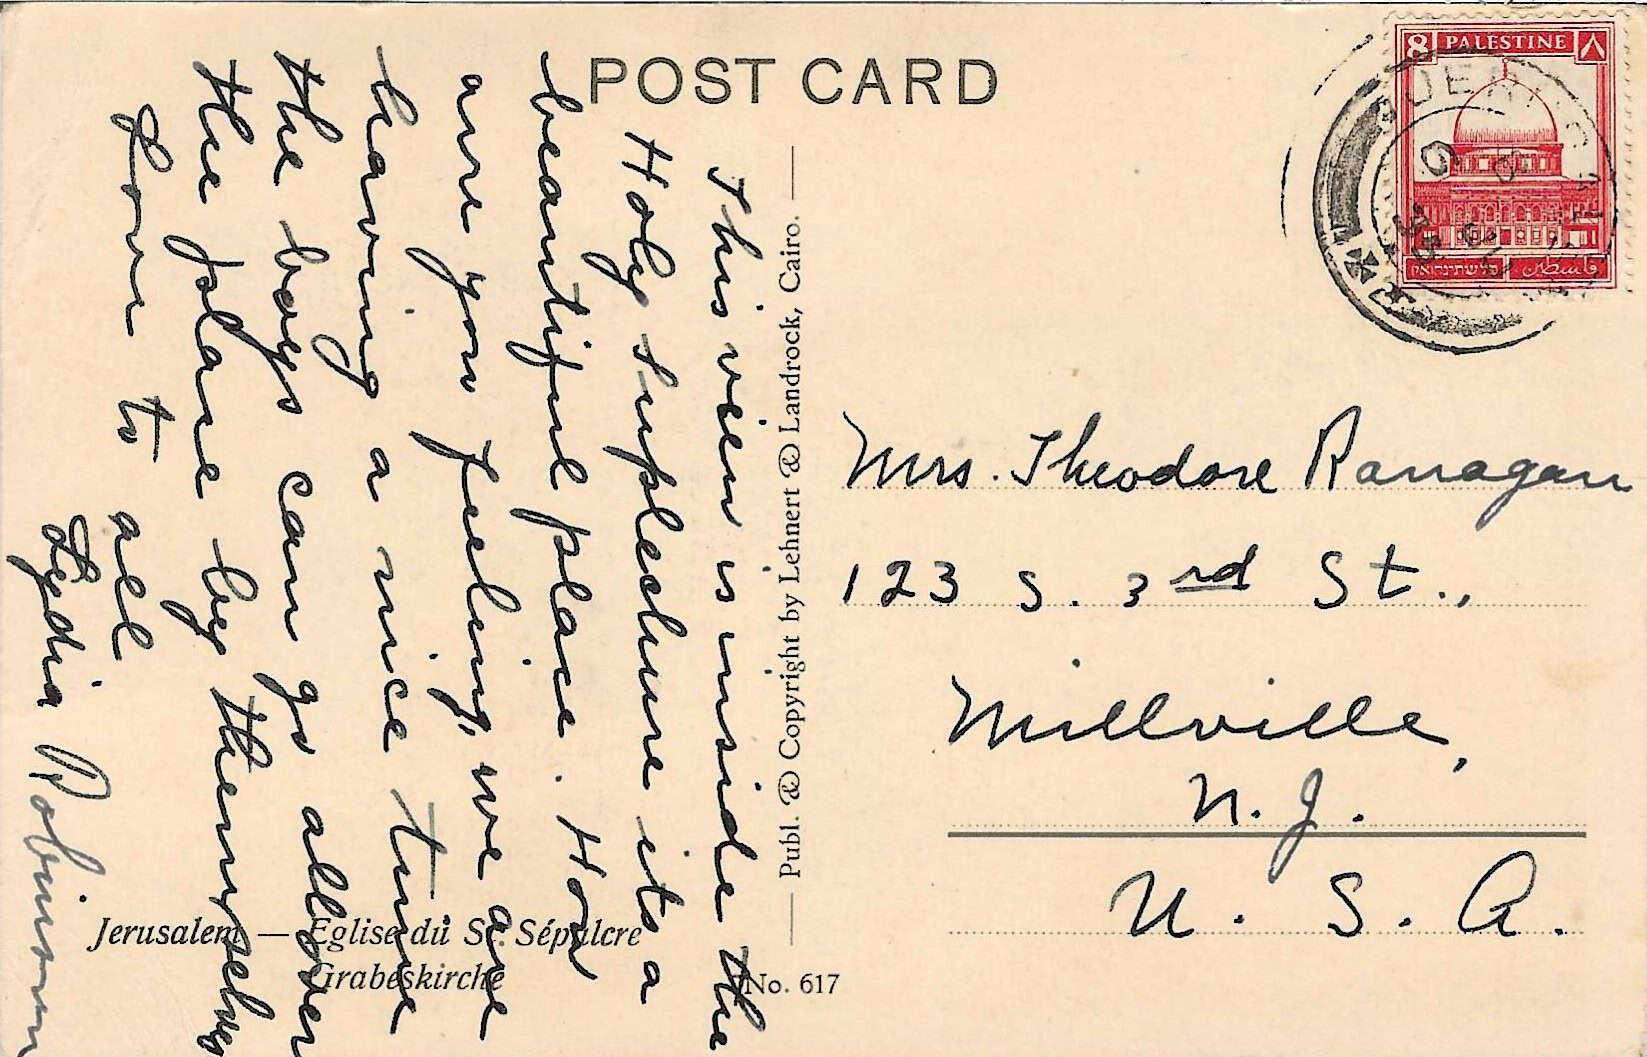 POST CARD
8 PALESTINE ٨
פלשתינה א״י فلسطين
This view is inside the
Holy Suplechure its a
beautiful place. How
are you feeling, we are
having a nice time
the boys can go all over
the place by themselves
Love to all
Lydia Robinson
Publ. & Copyright by Lehnert & Landrock, Cairo.
Mrs. Theodore Ranagan
123 S. 3rd St.,
Millville,
N. J.
U. S. A.
Jerusalem — Eglise du St. Sépulcre
Grabeskirche
No. 617